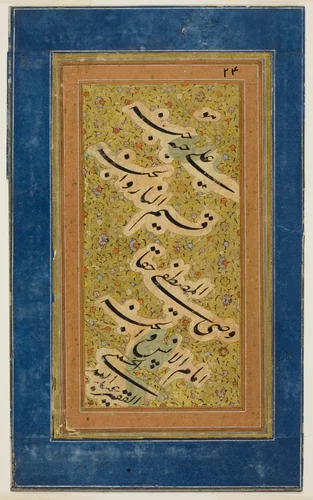 ۲۴
هو
علی حبه جنه
قسیم النار والجنه
وصی المصطفی حقا
امام الانس والجنه
الفقیر الحسنی